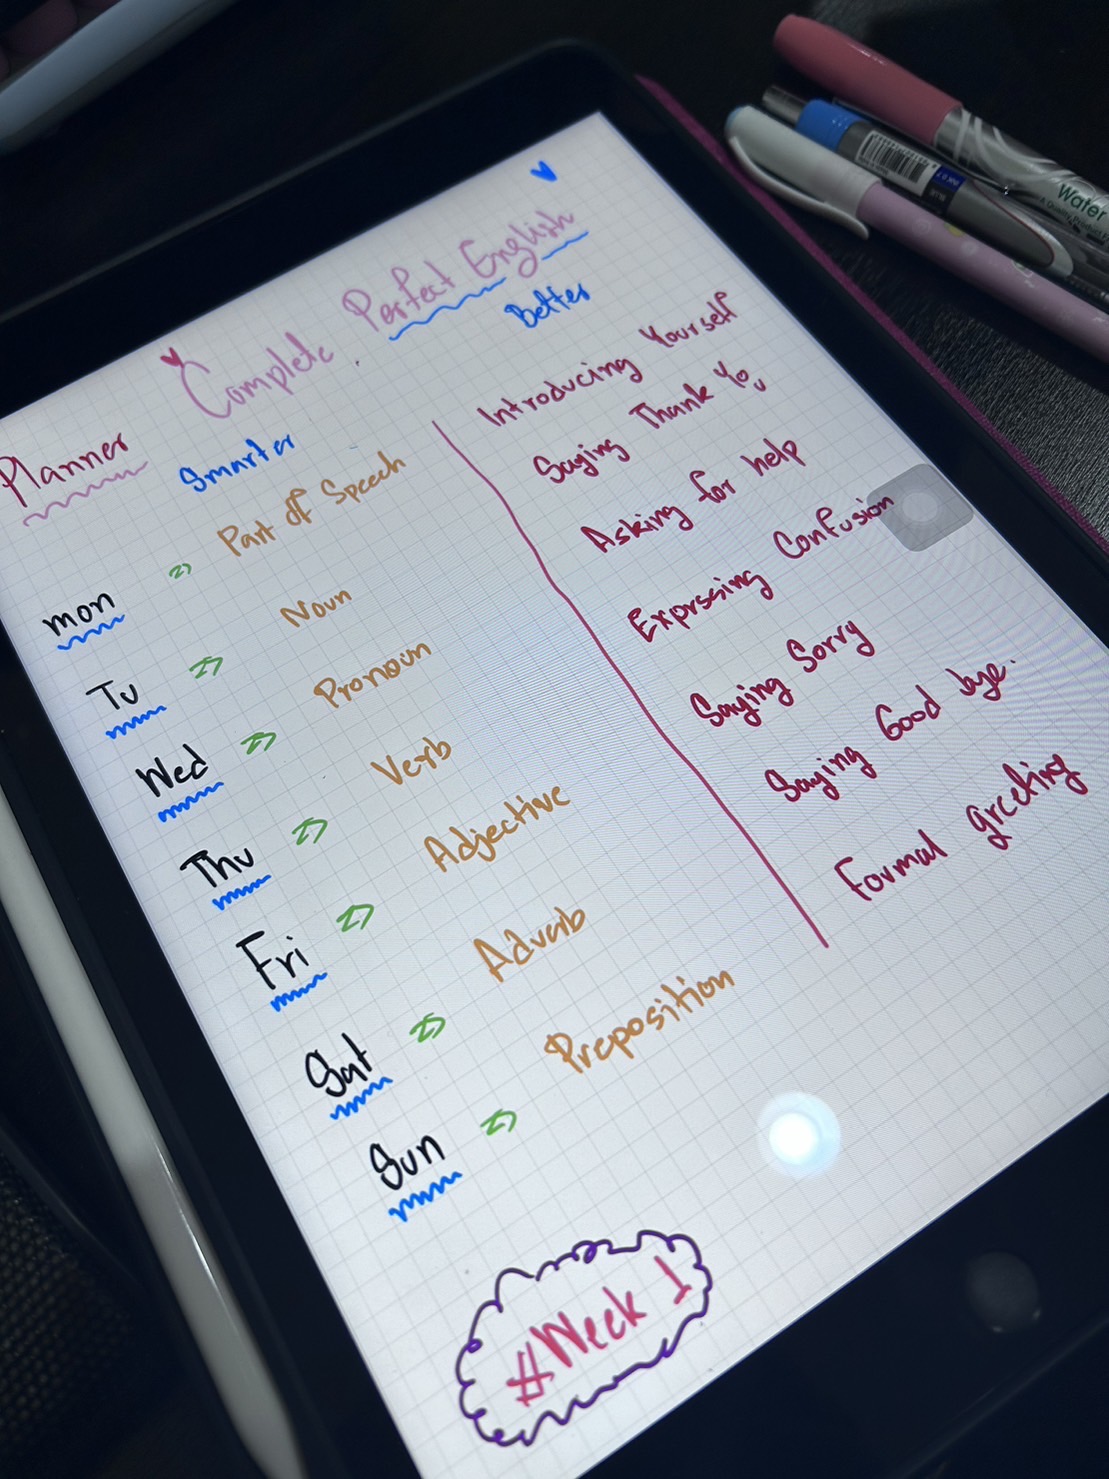 Complete Perfect English
Planner Smarter Better
Mon Part of Speech Introducing Yourself
Tu Noun Saying Thank You
Wed Pronoun Asking for help
Thu Verb Exprssing Confusion
Fri Adjective Saying Sorry
Sat Adverb Saying Good bye.
Sun Preposition Formal greeting
#Week 1
Water